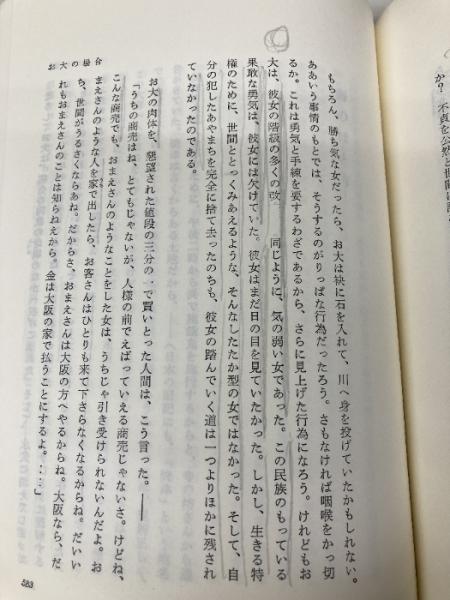 お大の場合
もちろん、勝ち気な女だったら、お大は袂に石を入れて、川へ身を投げていたかもしれない。
ああいう事情のもとでは、そうするのがりっぱな行為だったろう。さもなければ咽喉をかっ切
るか。これは勇気と手練を要するわざであるから、さらに見上げた行為になろう。けれどもお
大は、彼女の階級の多くの改 同じように、気の弱い女であった。この民族のもっている
果敢な勇気は、彼女には欠けていた。彼女はまだ日の目を見ていたかった。しかし、生きる特
権のために、世間ととっくみあえるような、そんなしたたか型の女ではなかった。そして、自
分の犯したあやまちを完全に捨て去ったのちも、彼女の踏んでいく道は一つよりほかに残され
ていなかったのである。
お大の肉体を、懇望された値段の三分の一で買いとった人間は、こう言った。――
「うちの商売はね、とてもじゃないが、人様の前でえばっていえる商売じゃないさ。けどね、
こんな商売でも、おまえさんのようなことをした女は、うちじゃ引き受けられないんだよ。お
まえさんのような人を家で出したら、お客さんはひとりも来て下さらなくなるからね。だいい
ち、世間がうるさくならあね。だからさ、おまえさんは大阪の方へやるからね。大阪なら、だ
れもおまえさんのことは知らねえから。金は大阪の家で払うことにするよ。……」
583
か？ 不貞を公然と世間に